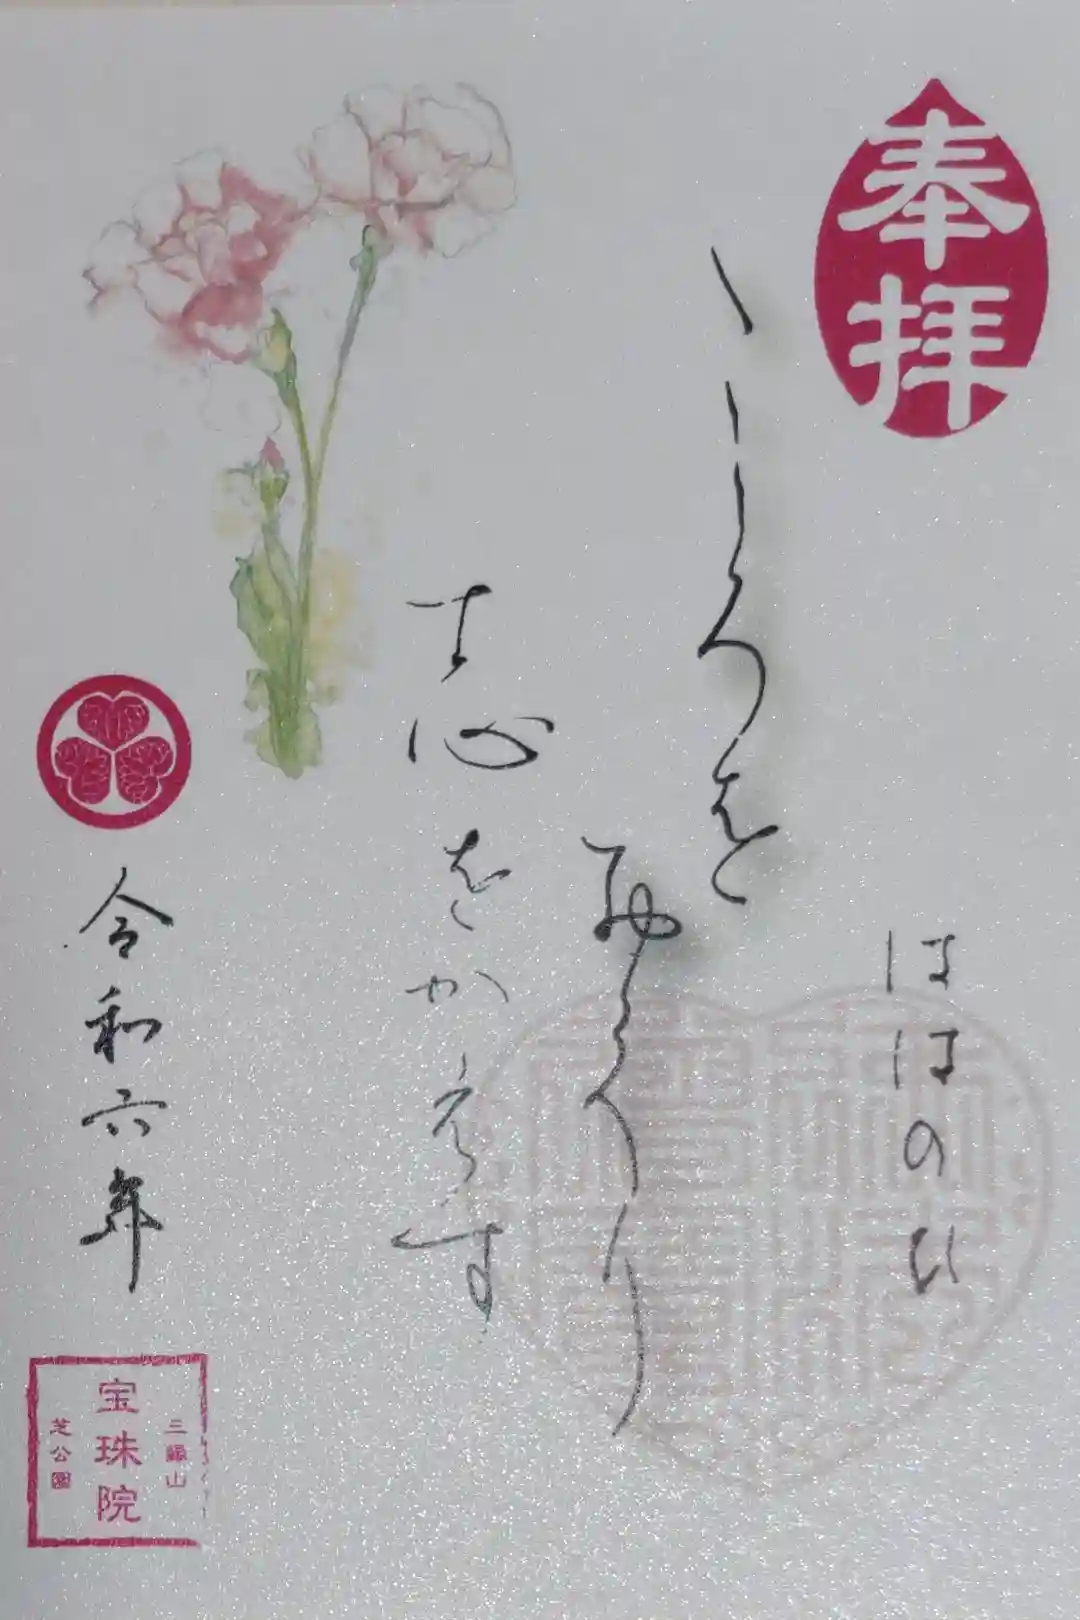 奉拝
ははのひ
こころを
寸心をかえす
令和六年
三縁山
宝珠院
芝公園